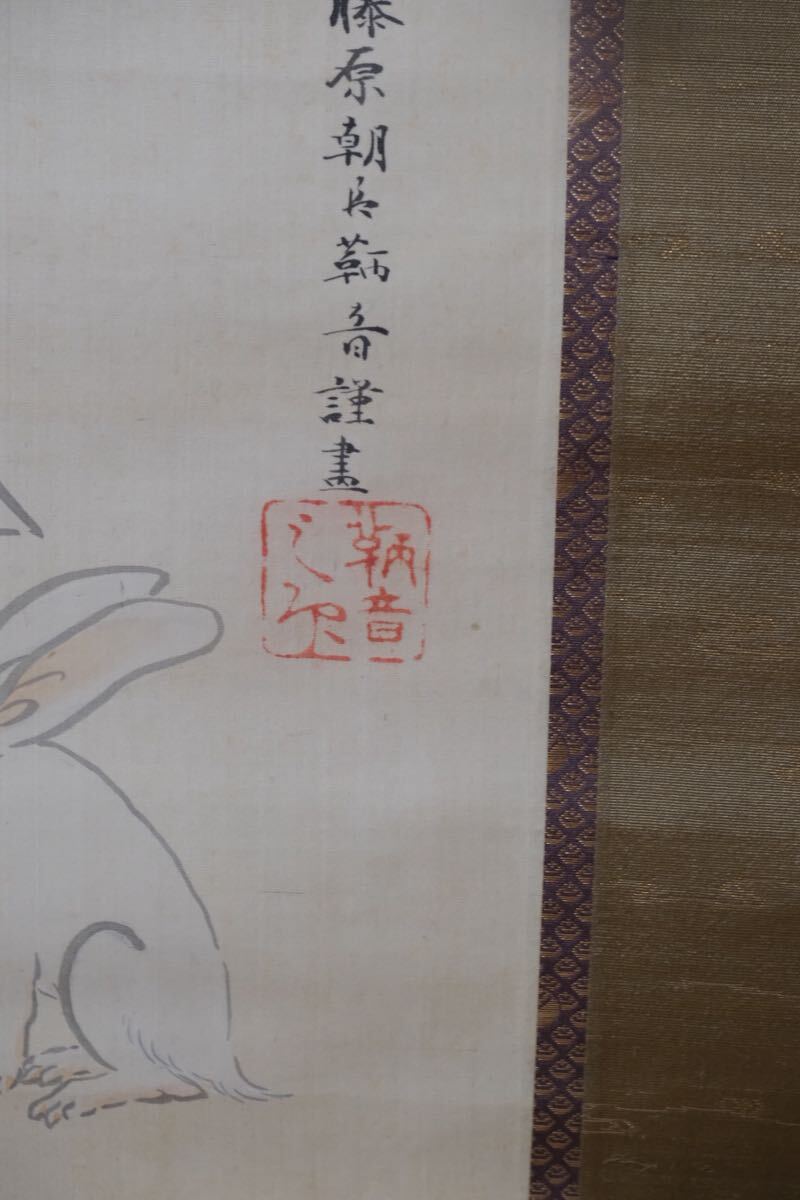 藤原朝臣鞆音謹畫
鞆音
之印